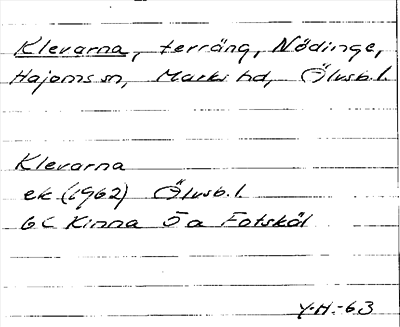 Klevarna, terräng, Nödinge,
Hajoms sn, Marks hd, Älvsb. l.
Klevarna
ek (1962) Älvsb. l.
6C Kinna Öa Fotskäl
Y.H.-63